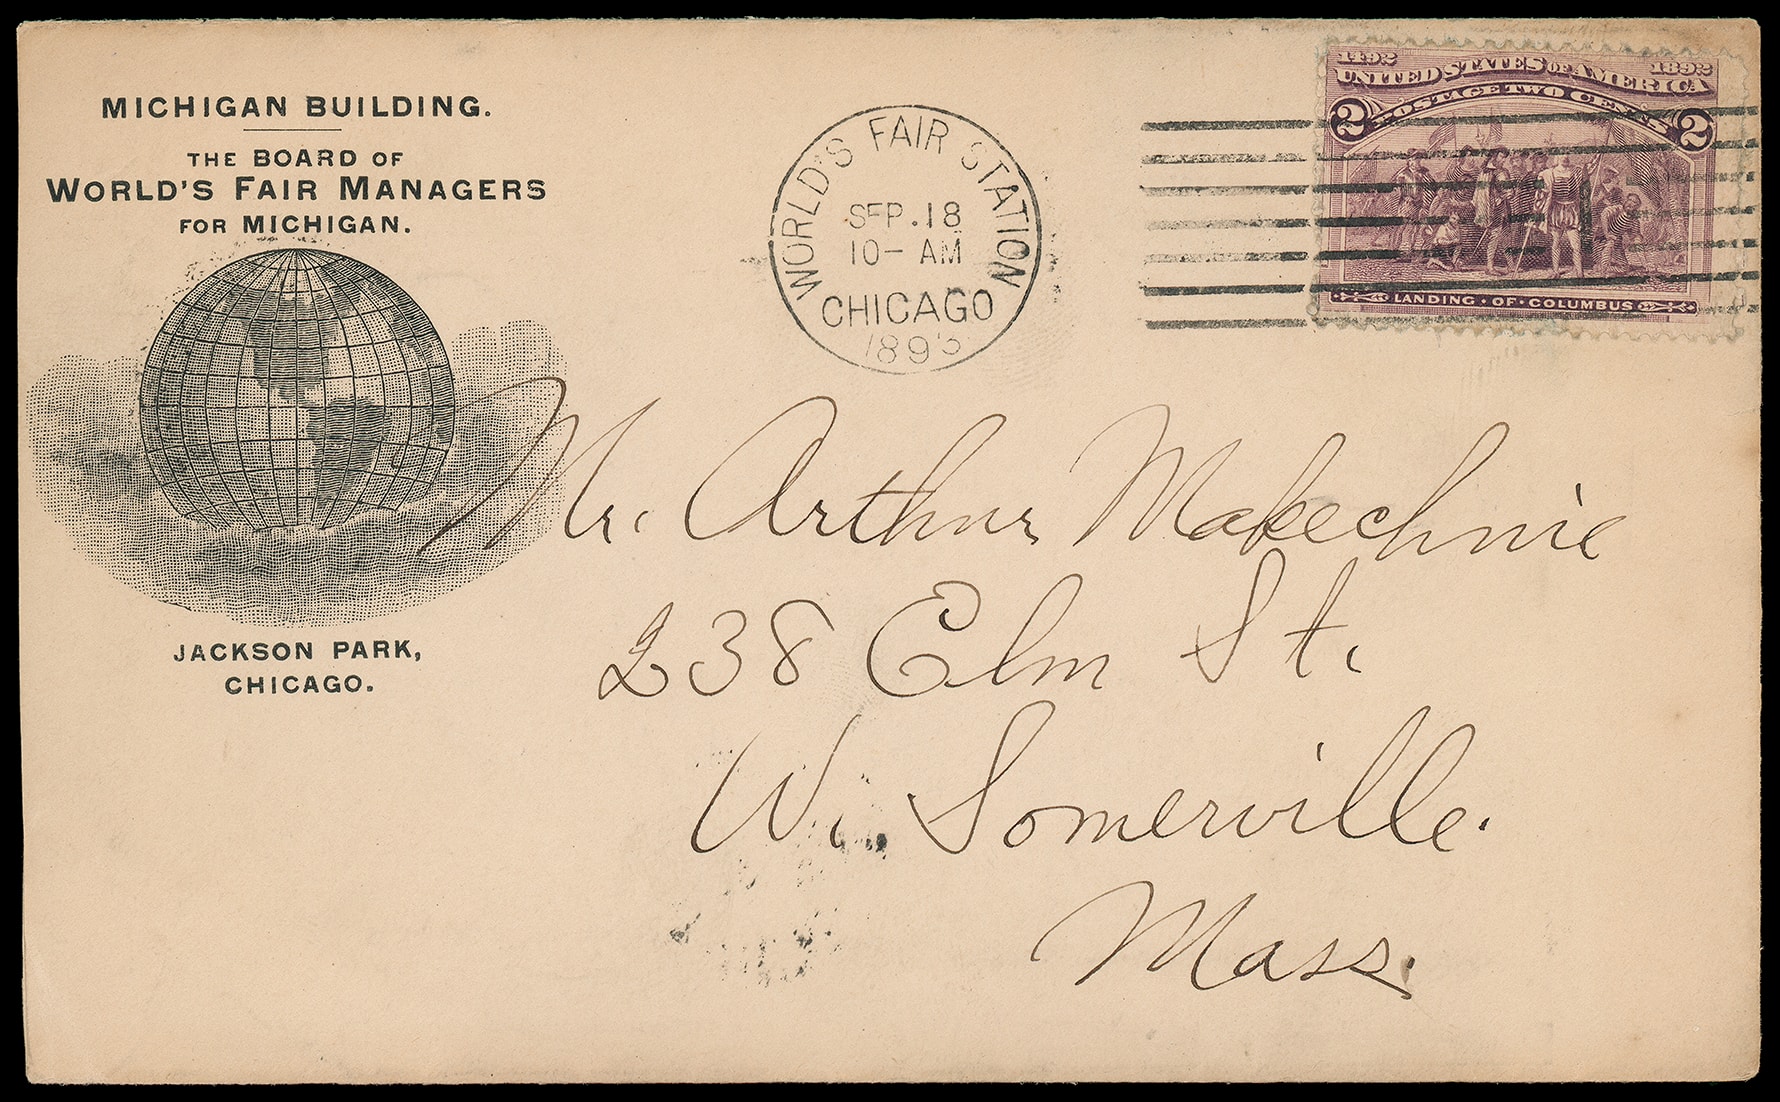 MICHIGAN BUILDING.
THE BOARD OF
WORLD'S FAIR MANAGERS
FOR MICHIGAN.
JACKSON PARK,
CHICAGO.
WORLD'S FAIR STATION
SEP. 18
10- AM
CHICAGO
1893
1492 1892
UNITED STATES OF AMERICA
POSTAGE TWO CENTS
2 2
LANDING · OF · COLUMBUS
Mr. Arthur Makechnie
238 Elm St.
W. Somerville.
Mass.